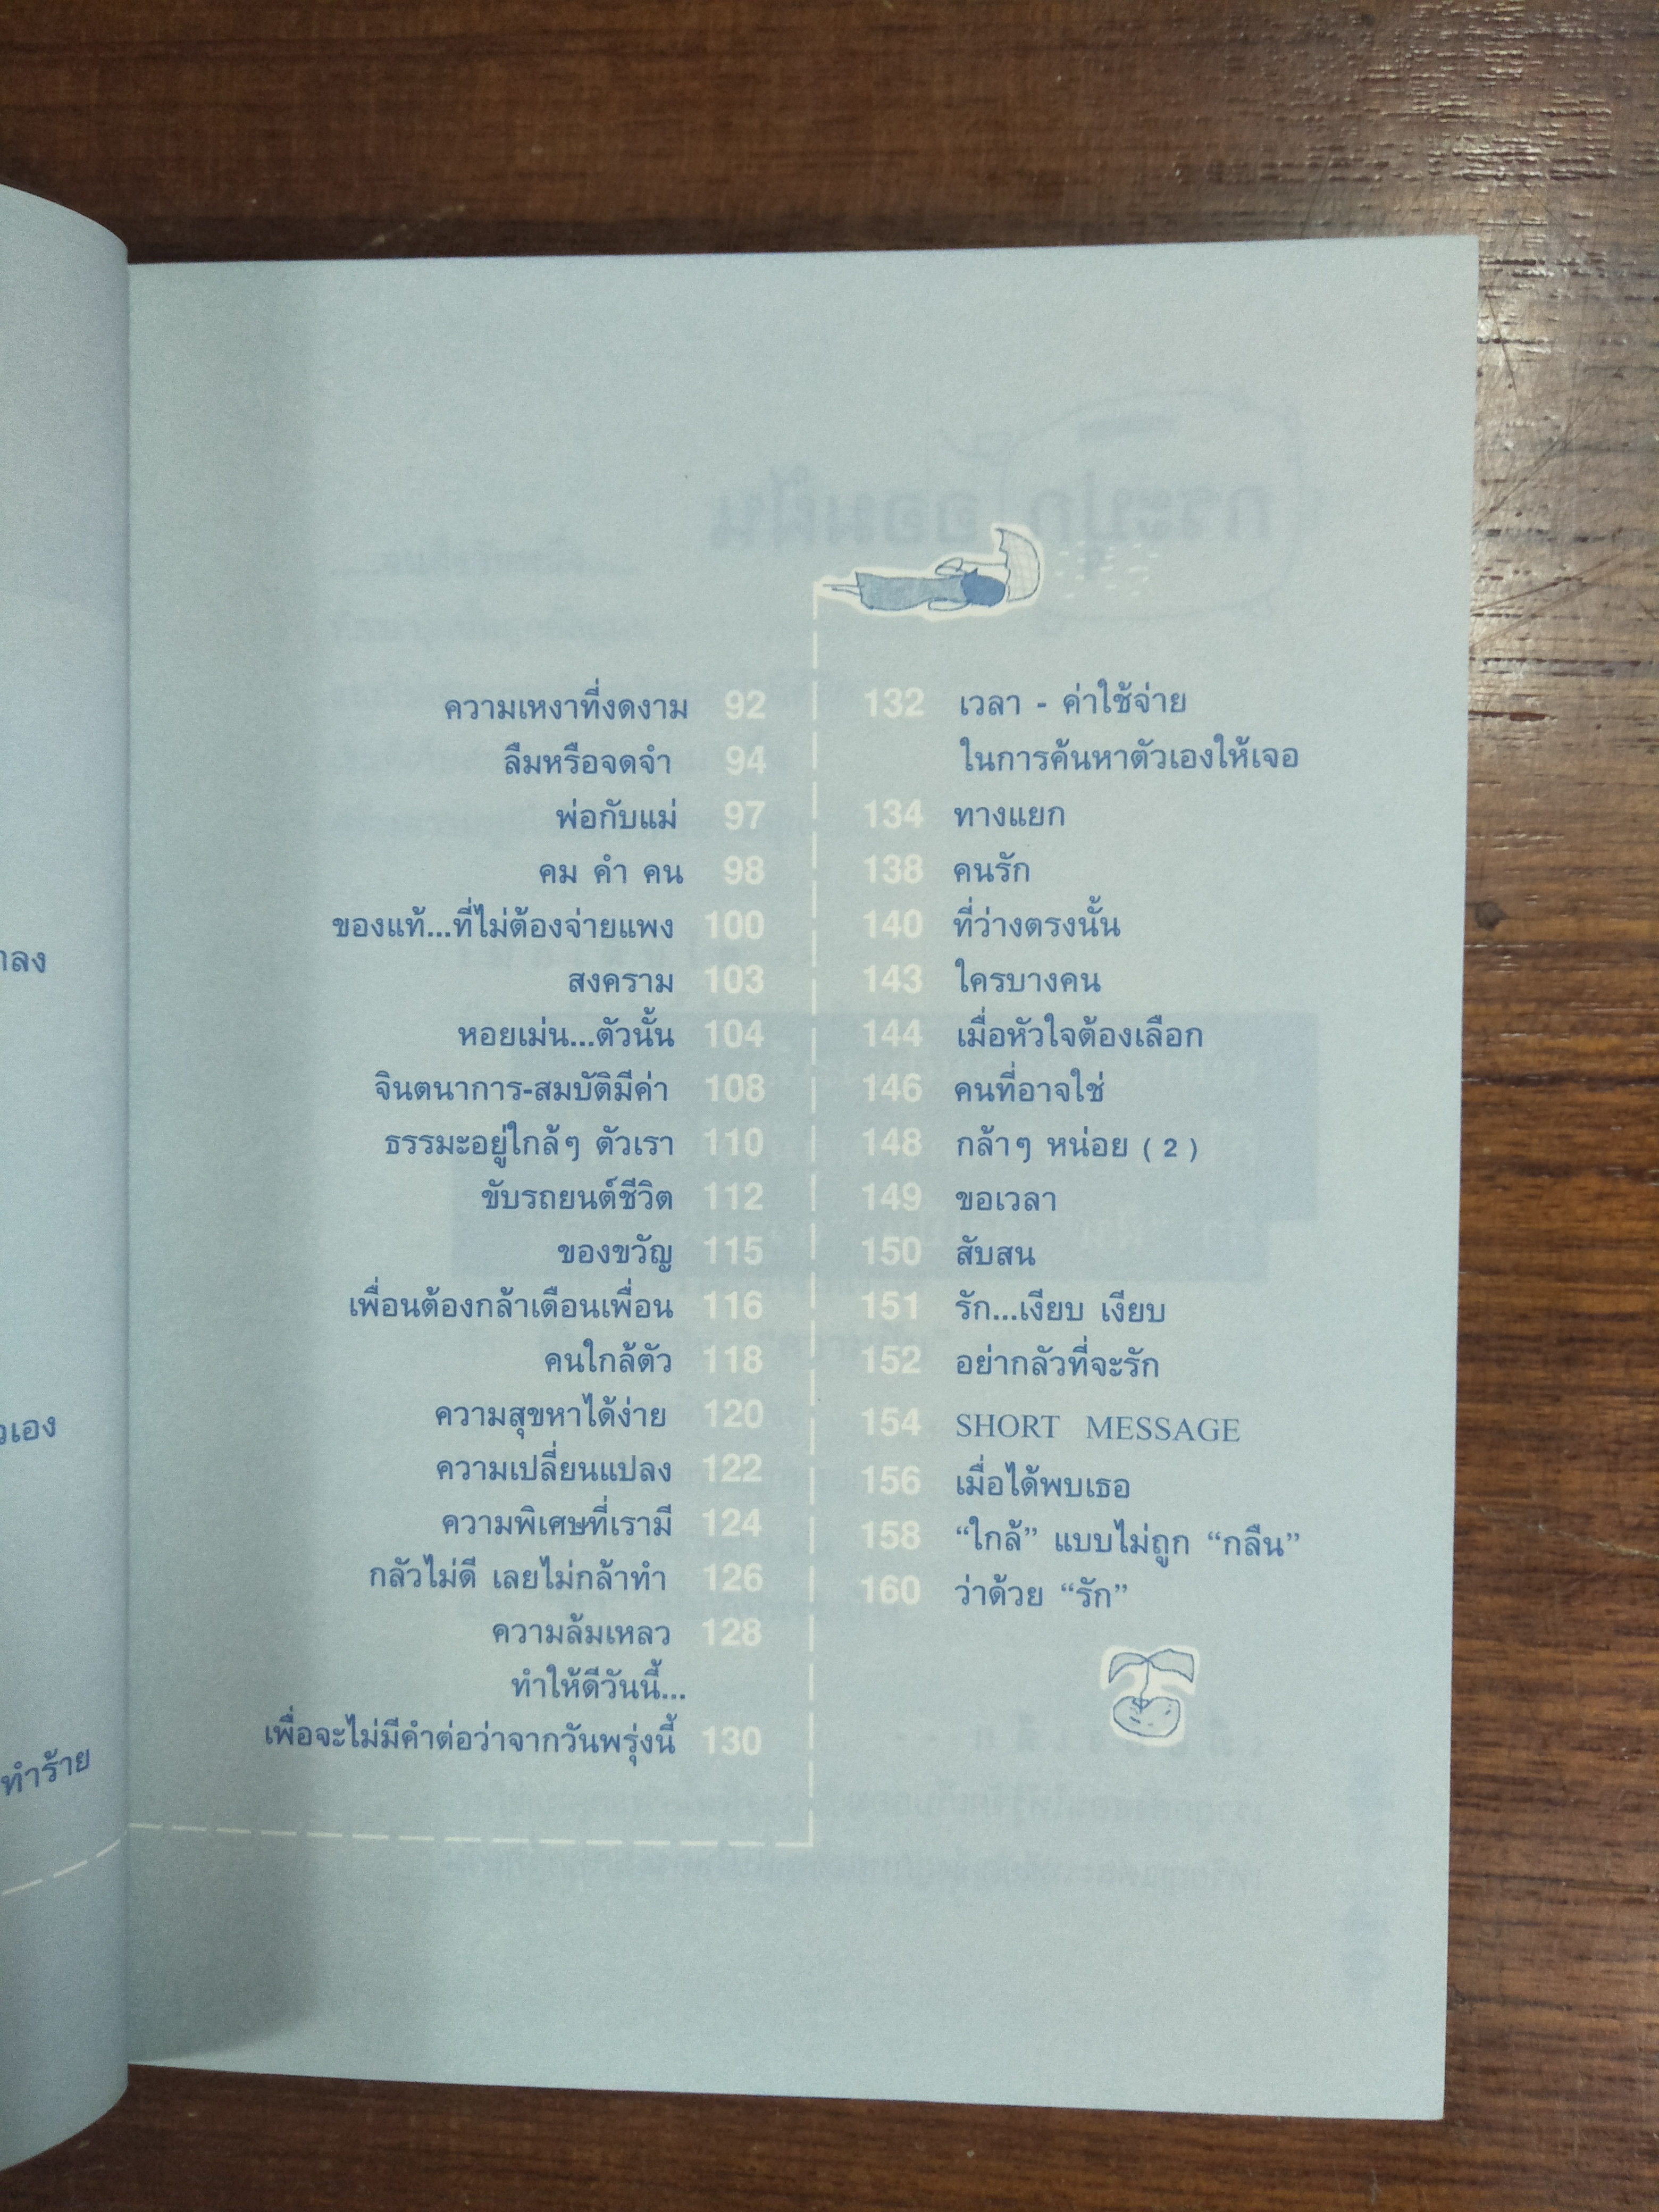 ความเหงาที่งดงาม 92
ลืมหรือจดจำ 94
พ่อกับแม่ 97
คม คำ คน 98
ของแท้...ที่ไม่ต้องจ่ายแพง 100
สงคราม 103
หอยเม่น...ตัวนั้น 104
จินตนาการ-สมบัติมีค่า 108
ธรรมะอยู่ใกล้ๆ ตัวเรา 110
ขับรถยนต์ชีวิต 112
ของขวัญ 115
เพื่อนต้องกล้าเตือนเพื่อน 116
คนใกล้ตัว 118
ความสุขหาได้ง่าย 120
ความเปลี่ยนแปลง 122
ความพิเศษที่เรามี 124
กลัวไม่ดี เลยไม่กล้าทำ 126
ความล้มเหลว 128
ทำให้ดีวันนี้...
เพื่อจะไม่มีคำต่อว่าจากวันพรุ่งนี้ 130
132 เวลา - ค่าใช้จ่าย
ในการค้นหาตัวเองให้เจอ
134 ทางแยก
138 คนรัก
140 ที่ว่างตรงนั้น
143 ใครบางคน
144 เมื่อหัวใจต้องเลือก
146 คนที่อาจใช่
148 กล้าๆ หน่อย ( 2 )
149 ขอเวลา
150 สับสน
151 รัก...เงียบ เงียบ
152 อย่ากลัวที่จะรัก
154 SHORT MESSAGE
156 เมื่อได้พบเธอ
158 “ใกล้” แบบไม่ถูก “กลืน”
160 ว่าด้วย “รัก”
ทำร้าย